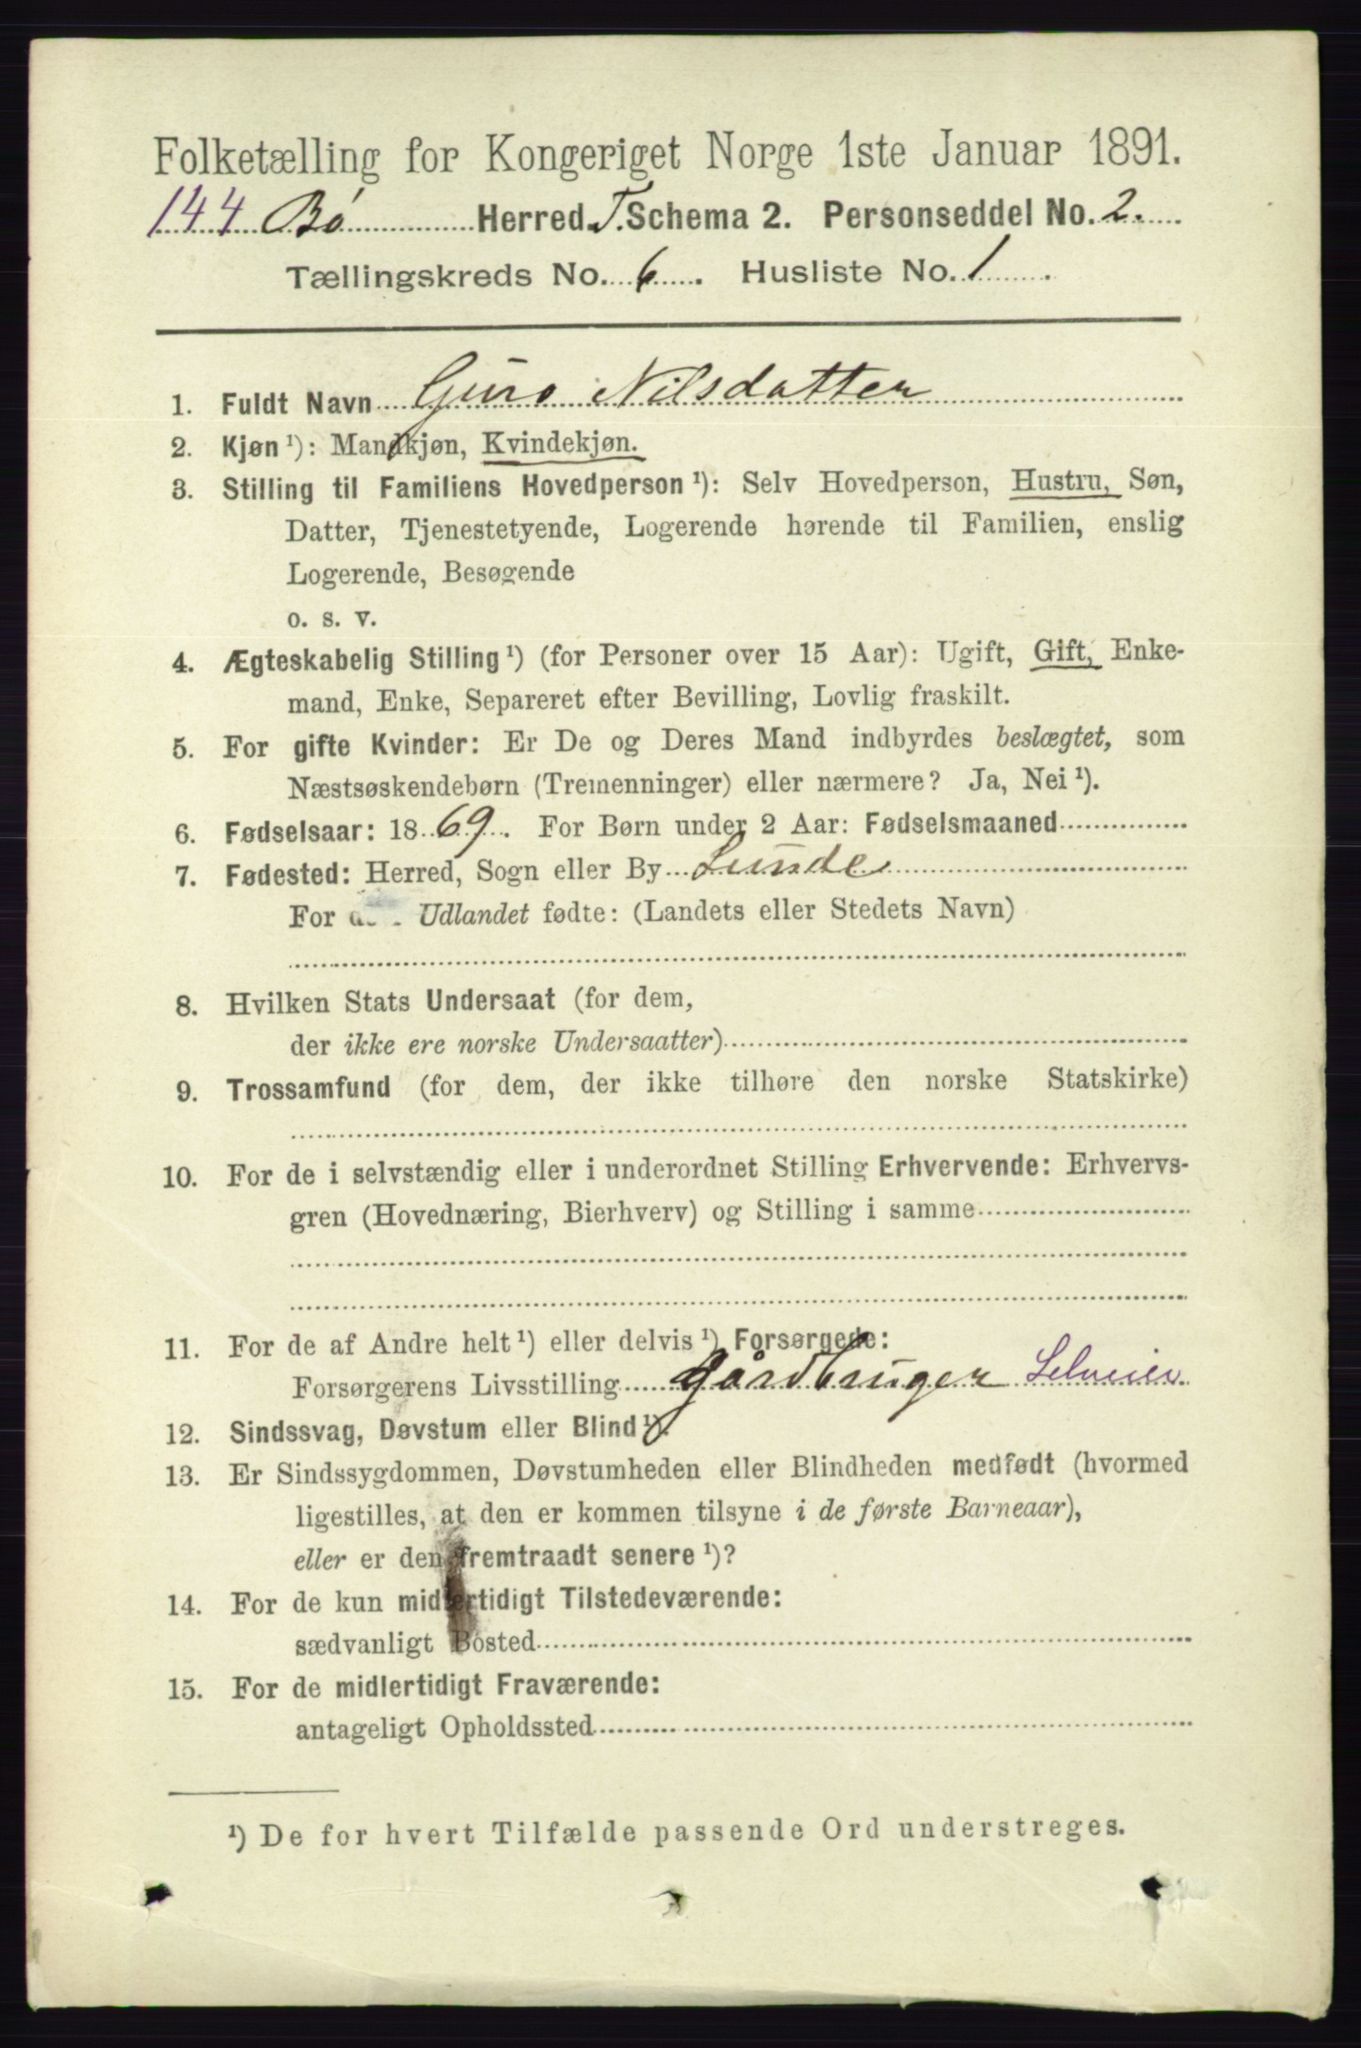 Folketælling for Kongeriget Norge 1ste Januar 1891.
144 Bø Herred. T. Schema 2. Personseddel No. 2.
Tællingskreds No. 6. Husliste No. 1.
1. Fuldt Navn Guro Nilsdatter
2. Kjøn ¹): Mandkjøn, Kvindekjøn.
3. Stilling til Familiens Hovedperson ¹): Selv Hovedperson, Hustru, Søn,
Datter, Tjenestetyende, Logerende hørende til Familien, enslig
Logerende, Besøgende
o. s. v.
4. Ægteskabelig Stilling ¹) (for Personer over 15 Aar): Ugift, Gift, Enke-
mand, Enke, Separeret efter Bevilling, Lovlig fraskilt.
5. For gifte Kvinder: Er De og Deres Mand indbyrdes beslægtet, som
Næstsøskendebørn (Tremenninger) eller nærmere? Ja, Nei ¹).
6. Fødselsaar: 1869. For Børn under 2 Aar: Fødselsmaaned
7. Fødested: Herred, Sogn eller By Lunde
For Udlandet fødte: (Landets eller Stedets Navn)
8. Hvilken Stats Undersaat (for dem,
der ikke ere norske Undersaatter)
9. Trossamfund (for dem, der ikke tilhøre den norske Statskirke)
10. For de i selvstændig eller i underordnet Stilling Erhvervende: Erhvervs-
gren (Hovednæring, Bierhverv) og Stilling i samme
11. For de af Andre helt ¹) eller delvis ¹) Forsørgede:
Forsørgerens Livsstilling gårdbruger Selveier
12. Sindssvag, Døvstum eller Blind ¹).
13. Er Sindssygdommen, Døvstumheden eller Blindheden medfødt (hvormed
ligestilles, at den er kommen tilsyne i de første Barneaar),
eller er den fremtraadt senere ¹)?
14. For de kun midlertidigt Tilstedeværende:
sædvanligt Bosted
15. For de midlertidigt Fraværende:
antageligt Opholdssted
¹) De for hvert Tilfælde passende Ord understreges.